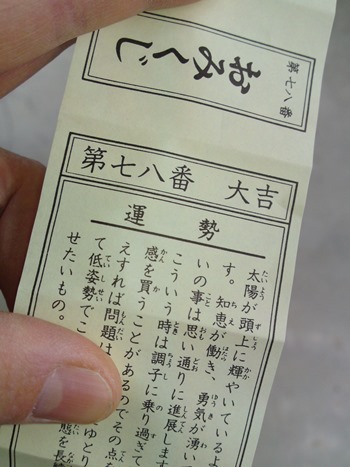 第七八番
おみくじ
第七八番 大吉
運勢
太陽が頭上に輝やいているよ
す。知恵が働き、勇気が湧いて
いの事は思い通りに進展します
こういう時は調子に乗り過ぎて
感を買うことがあるのでその点を
えすれば問題は ゆとり
て低姿勢でこ 態を長
せたいもの。